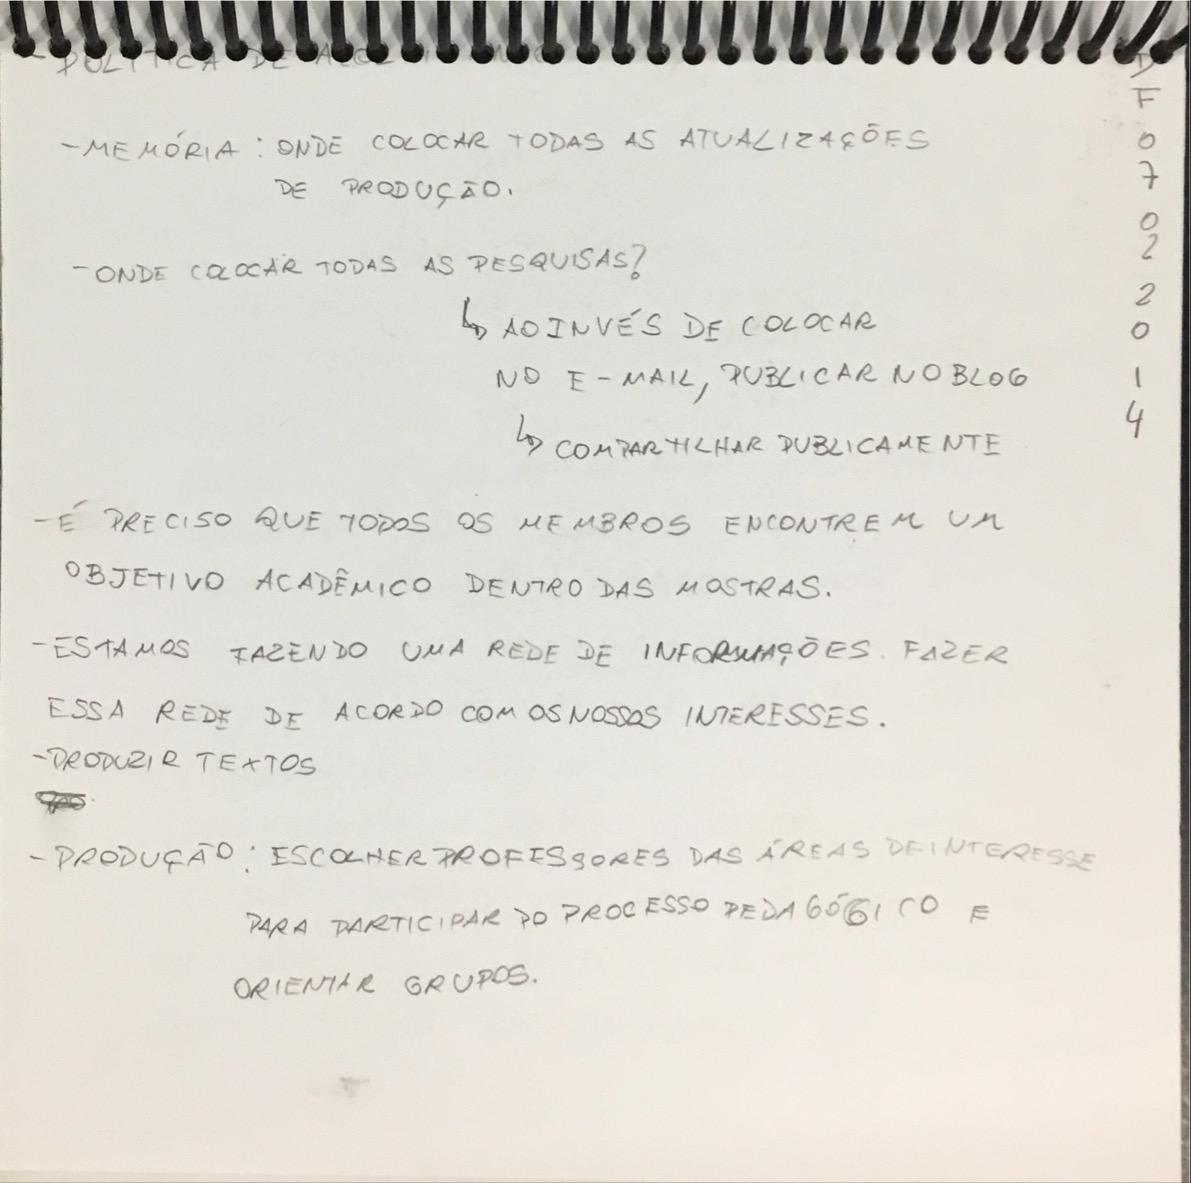 - POLÍTICA DE
- MEMÓRIA : ONDE COLOCAR TODAS AS ATUALIZAÇÕES
DE PRODUÇÃO.
- ONDE COLOCAR TODAS AS PESQUISAS?
↳ AO INVÉS DE COLOCAR
NO E-MAIL, PUBLICAR NO BLOG
↳ COMPARTILHAR PUBLICAMENTE
- É PRECISO QUE TODOS OS MEMBROS ENCONTREM UM
OBJETIVO ACADÊMICO DENTRO DAS MOSTRAS.
- ESTAMOS FAZENDO UMA REDE DE INFORMAÇÕES. FAZER
ESSA REDE DE ACORDO COM OS NOSSOS INTERESSES.
- PRODUZIR TEXTOS
- PRODUÇÃO : ESCOLHER PROFESSORES DAS ÁREAS DE INTERESSE
PARA PARTICIPAR DO PROCESSO PEDAGÓGICO E
ORIENTAR GRUPOS.
D
F
0
7
0
2
2
0
1
4